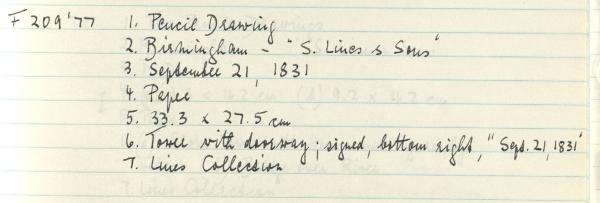 F 209'77 1. Pencil Drawing
2. Birmingham - "S. Lines & Sons"
3. September 21, 1831
4. Paper
5. 33.3 x 27.5 cm
6. Tower with doorway; signed, bottom right, "Sept. 21, 1831"
7. Lines Collection